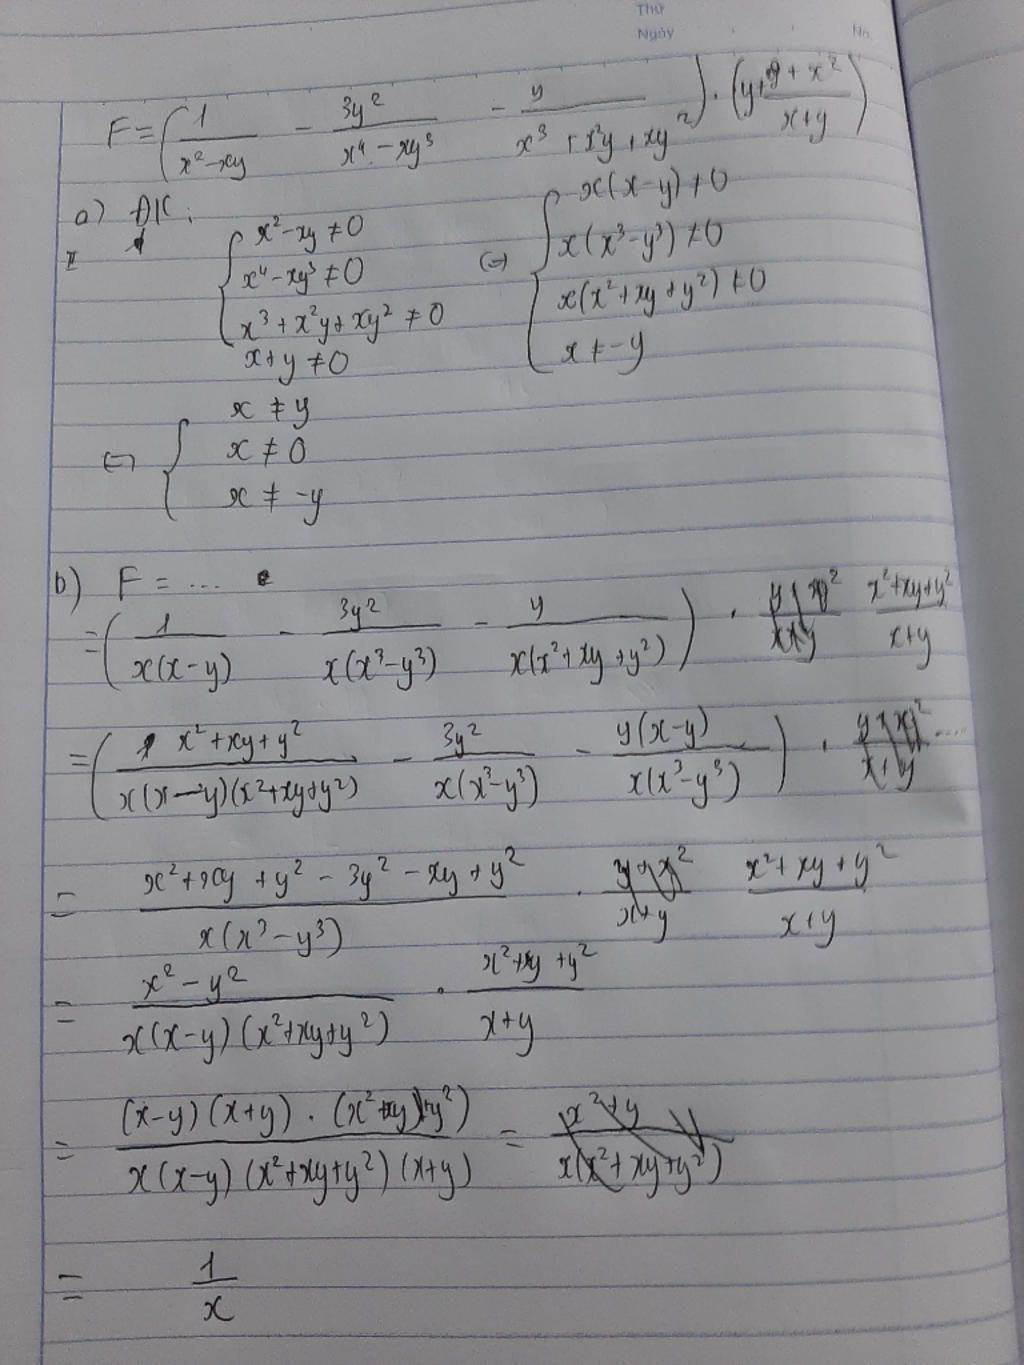 Thứ
Ngày No.
F = ( 1/(x² - xy) - 3y²/(x⁴ - xy³) - y/(x³ + x²y + xy²) ) . ( y + x²/(x+y) )
a) ĐK:
{ x² - xy ≠ 0 (=) { x(x-y) ≠ 0
x⁴ - xy³ ≠ 0 x(x³ - y³) ≠ 0
x³ + x²y + xy² ≠ 0 x(x² + xy + y²) ≠ 0
x + y ≠ 0 x ≠ -y
(=) { x ≠ y
x ≠ 0
x ≠ -y
b) F = ...
= ( 1/(x(x-y)) - 3y²/(x(x³-y³)) - y/(x(x²+xy+y²)) ) . (x²+xy+y²)/(x+y)
= ( (x²+xy+y²)/(x(x-y)(x²+xy+y²)) - 3y²/(x(x³-y³)) - y(x-y)/(x(x³-y³)) ) . ....
= (x²+xy+y² - 3y² - xy + y²)/(x(x³-y³)) . (x²+xy+y²)/(x+y)
= (x² - y²)/(x(x-y)(x²+xy+y²)) . (x²+xy+y²)/(x+y)
= ((x-y)(x+y).(x²+xy+y²))/(x(x-y)(x²+xy+y²)(x+y)) =
= 1/x